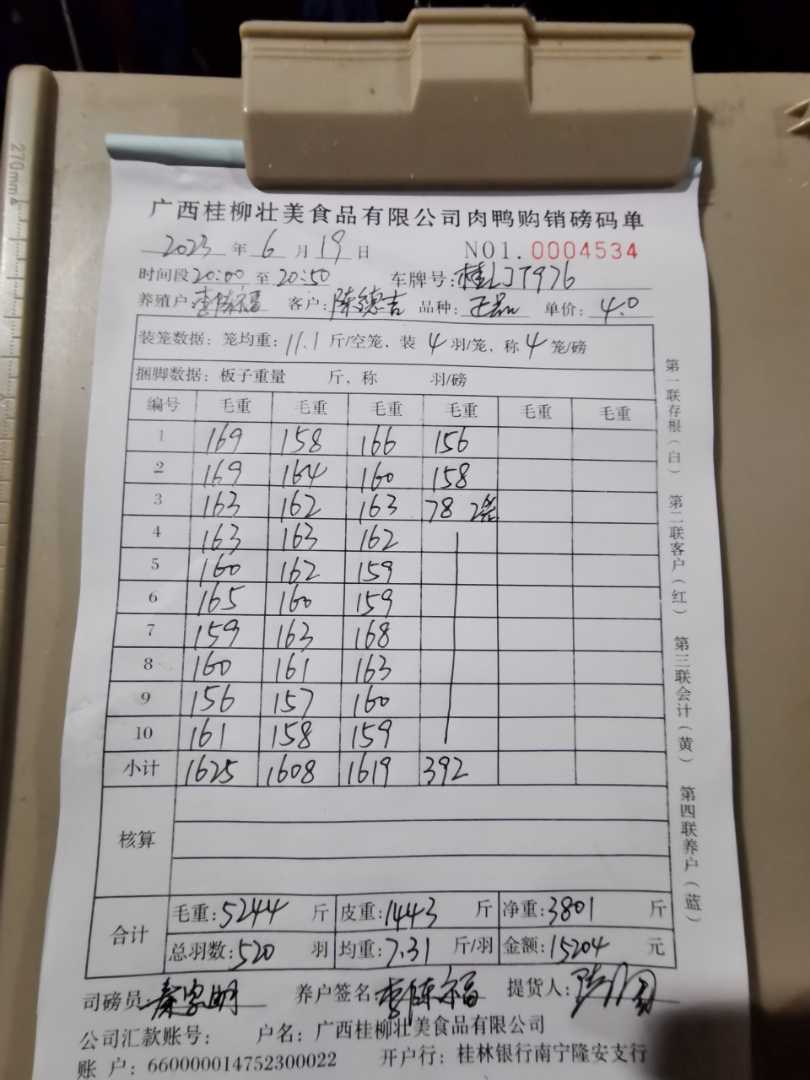 270mm
广西桂柳壮美食品有限公司肉鸭购销磅码单
2023 年 6 月 19 日 NO1. 0004534
时间段 20:00 至 20:50 车牌号: 桂LJT976
养殖户 李陈福 客户: 陈德吉 品种: 正品 单价: 4.0
装笼数据: 笼均重: 11.1 斤/空笼, 装 4 羽/笼, 称 4 笼/磅
捆脚数据: 板子重量 斤, 称 羽/磅
编号 毛重 毛重 毛重 毛重 毛重 毛重
1 169 158 166 156
2 169 164 160 158
3 163 162 163 78 2笼
4 163 163 162
5 160 162 159
6 165 160 159
7 159 163 168
8 160 161 163
9 156 157 160
10 161 158 159
小计 1625 1608 1619 392
核算
合计
毛重: 5244 斤 皮重: 1443 斤 净重: 3801 斤
总羽数: 520 羽 均重: 7.31 斤/羽 金额: 15204 元
司磅员 养户签名: 李陈福 提货人:
公司汇款账号: 户名: 广西桂柳壮美食品有限公司
账 户: 660000014752300022 开户行: 桂林银行南宁隆安支行
第一联存根(白) 第二联客户(红) 第三联会计(黄) 第四联养户(蓝)